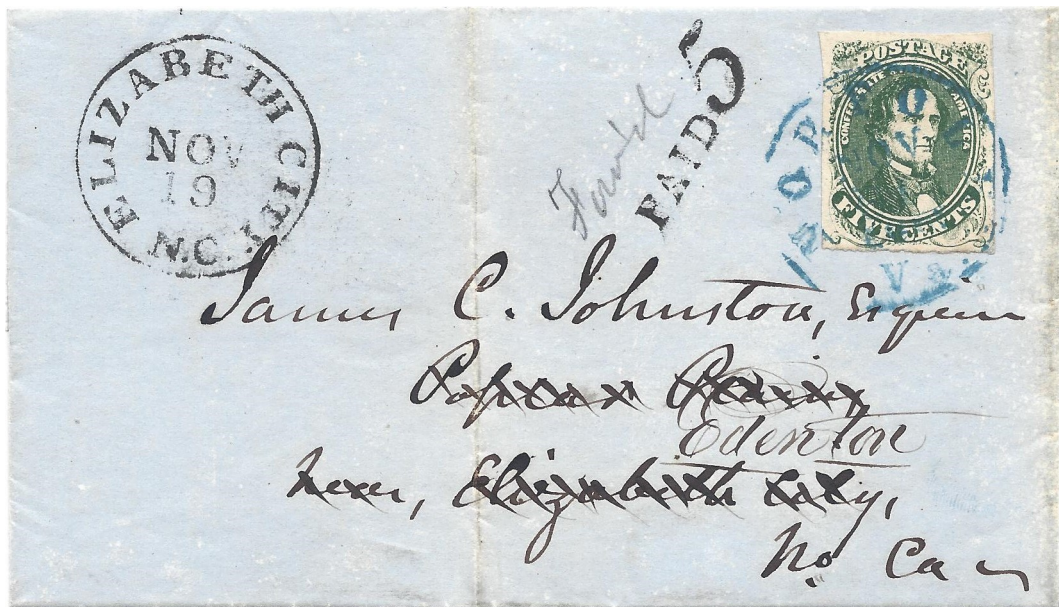 ELIZABETH CITY
NOV
19
N.C.
Forwd
PAID 5
POSTAGE
CONFEDERATE AMERICA
FIVE CENTS
NOR
VA
James C. Johnston, Esquire
Edenton
near, Elizabeth City,
No Ca